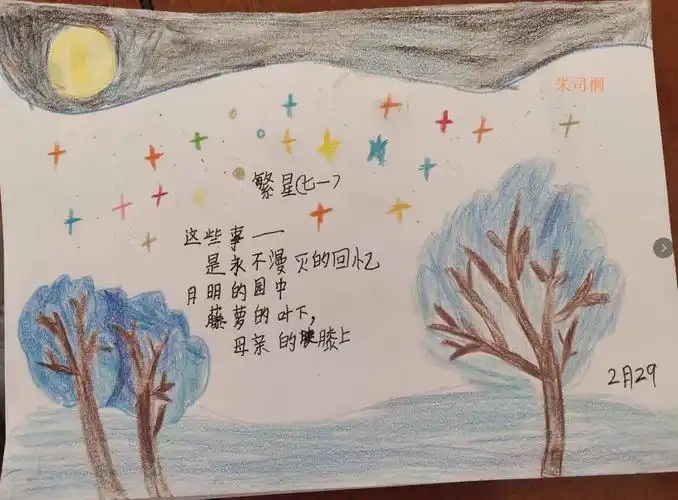 朱司桐
繁星(七一)
这些事——
是永不漫灭的回忆
月明的园中
藤萝的叶下,
母亲的膝上
2月29